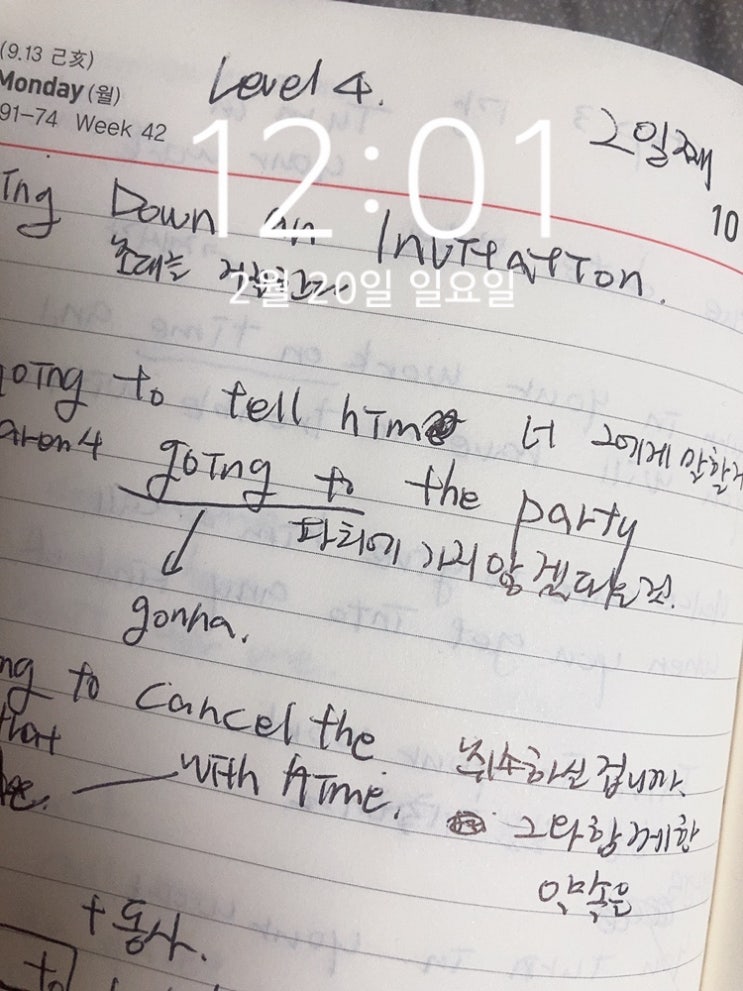 (9.13 己亥)
Monday (월)
91-74 Week 42
Level 4.
2일째
12:01
10
Ing Down an InvItatIon.
초대를 거절한다
2월 20일 일요일
oIng to tell hIm 너 그에게 말할거
goIng to the party
파티에 가지 않겠다는것.
gonna.
ng to cancel the 취소하실 겁니까.
that with hIme. 그와 함께한
약속은
+ 동사.
to